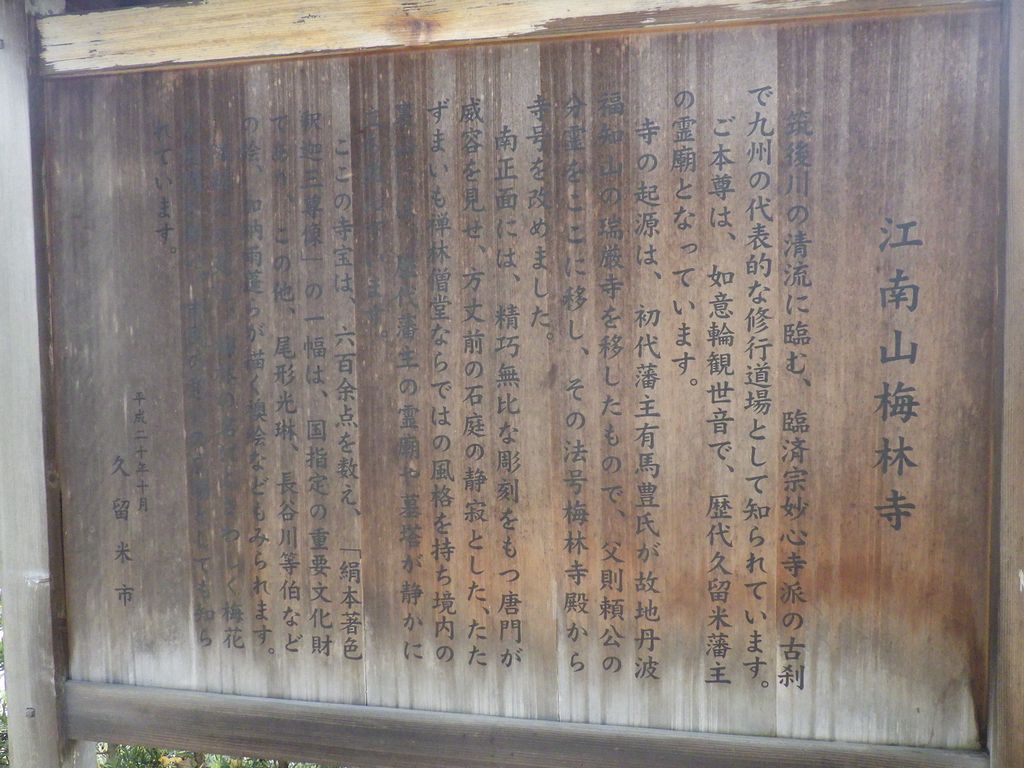 江南山梅林寺
筑後川の清流に臨む、臨済宗妙心寺派の古刹
で九州の代表的な修行道場として知られています。
ご本尊は、如意輪観世音で、歴代久留米藩主
の霊廟となっています。
寺の起源は、初代藩主有馬豊氏が故地丹波
福知山の瑞巌寺を移したもので、父則頼公の
分霊をここに移し、その法号梅林寺殿から
寺号を改めました。
南正面には、精巧無比な彫刻をもつ唐門が
威容を見せ、方丈前の石庭の静寂とした、たた
ずまいも禅林僧堂ならではの風格を持ち境内の
歴代藩主の霊廟や墓塔が静かに
ます。
ここの寺宝は、六百余点を数え、「絹本著色
釈迦三尊像」の一幅は、国指定の重要文化財
であり、この他、尾形光琳、長谷川等伯など
の絵、狩納雨蓬らが描く襖絵などもみられます。
の名にふさわしく梅花
としても知ら
れています。
平成二十年十月
久留米市